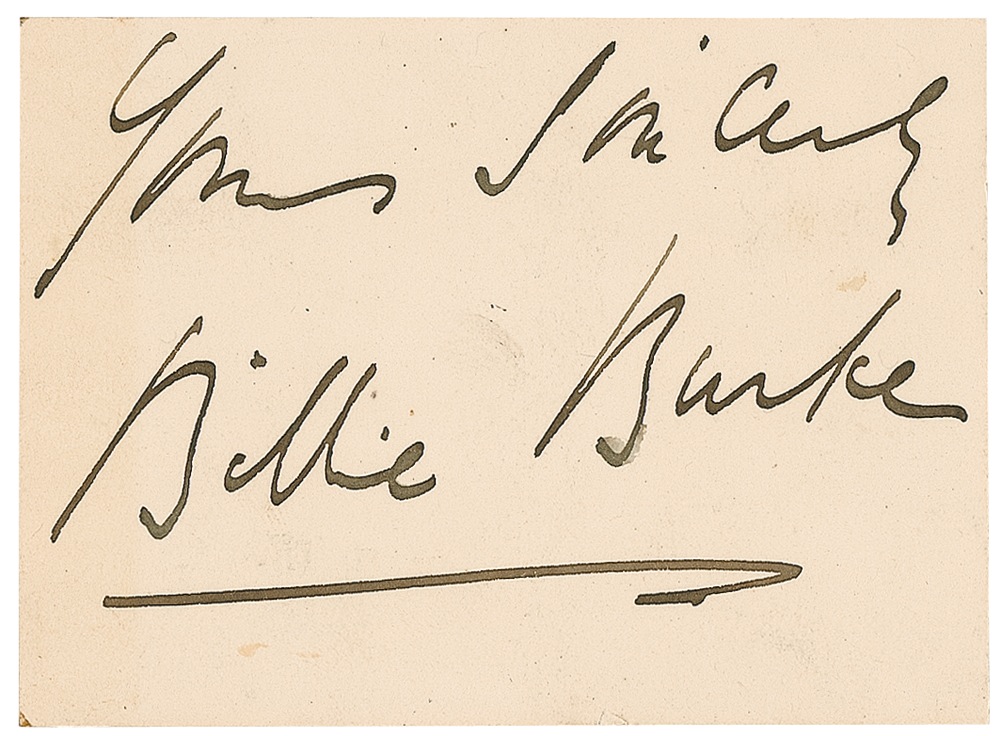 Yours Sincerely
Billie Burke